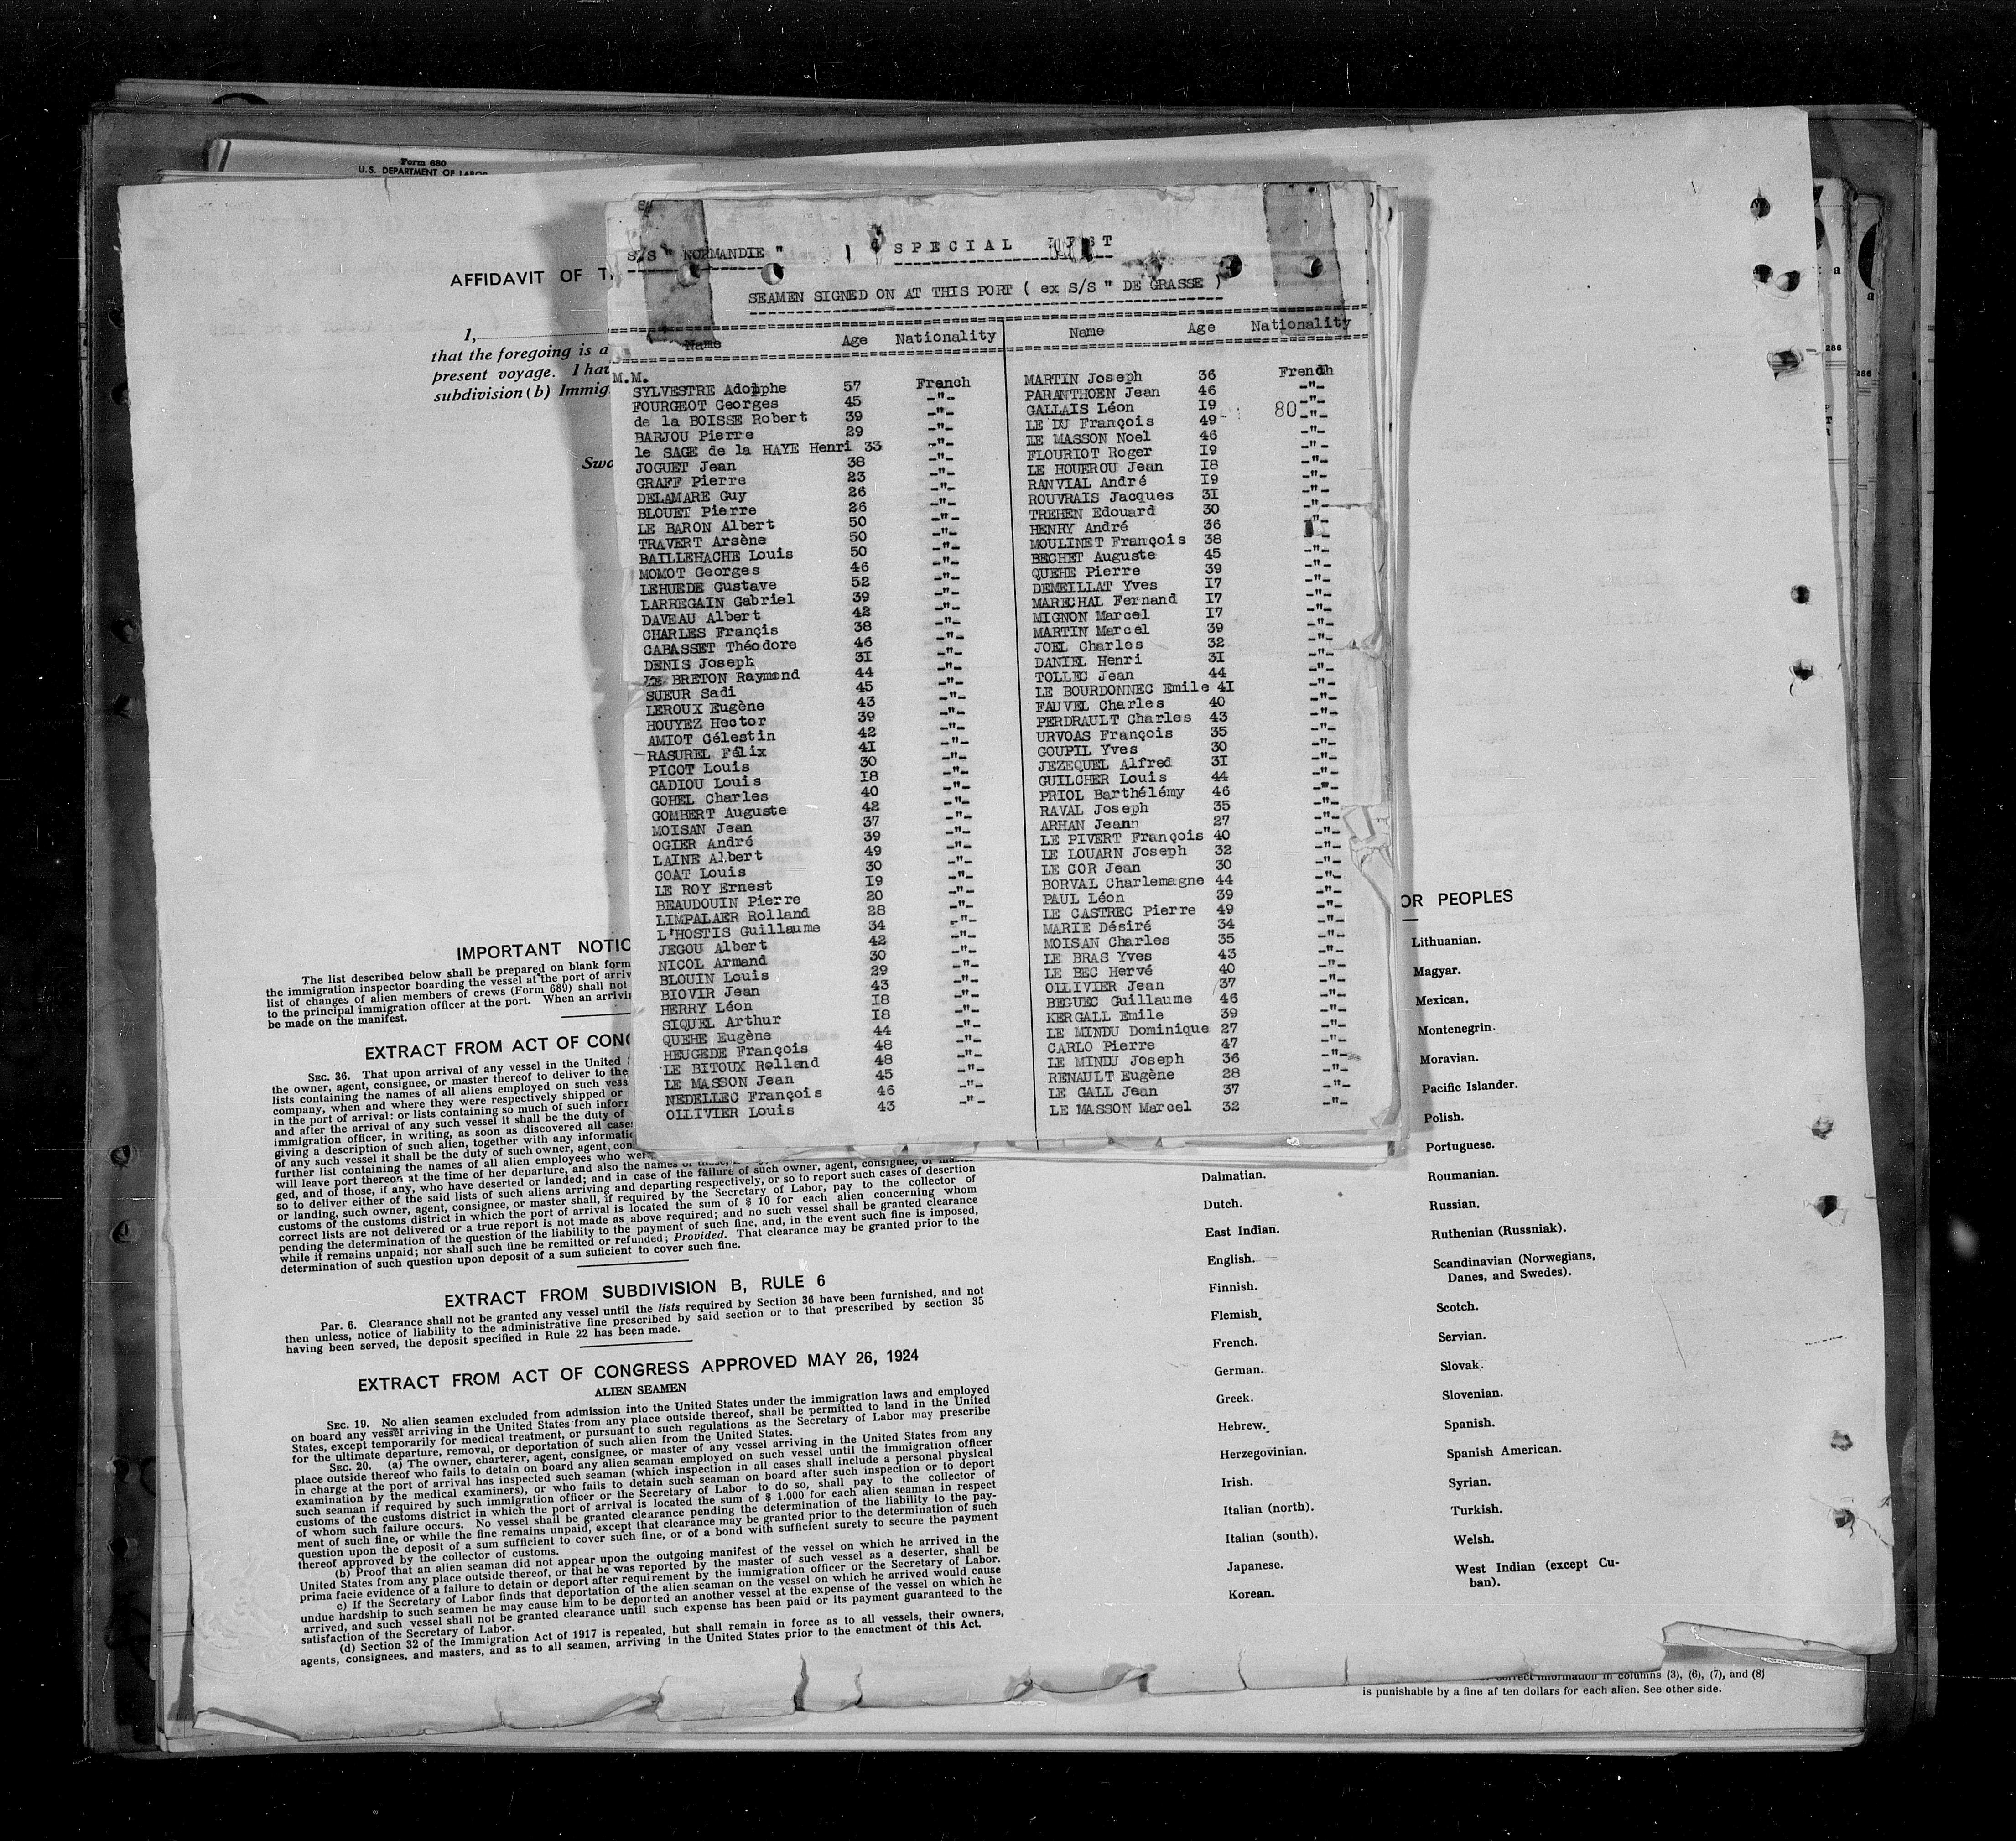 Form 680
U.S. DEPARTMENT OF LABOR
S/S " NORMANDIE "
SPECIAL LIST
SEAMEN SIGNED ON AT THIS PORT ( ex S/S " DE GRASSE )
Name Age Nationality Name Age Nationality
M.M.
SYLVESTRE Adolphe 57 French
FOURGEOT Georges 45 -"-
de la BOISSE Robert 39 -"-
BARJOU Pierre 29 -"-
le SAGE de la HAYE Henri 33 -"-
JOGUET Jean 38 -"-
GRAFF Pierre 23 -"-
DELAMARE Guy 26 -"-
BLOUET Pierre 26 -"-
LE BARON Albert 50 -"-
TRAVERT Arsène 50 -"-
BAILLEHACHE Louis 50 -"-
MOMOT Georges 46 -"-
LEHUEDE Gustave 52 -"-
LARREGAIN Gabriel 39 -"-
DAVEAU Albert 42 -"-
CHARLES Françis 38 -"-
CABASSET Théodore 46 -"-
DENIS Joseph 31 -"-
LE BRETON Raymond 44 -"-
SUEUR Sadi 45 -"-
LEROUX Eugène 43 -"-
HOUYEZ Hector 39 -"-
AMIOT Célestin 42 -"-
RASUREL Félix 41 -"-
PICOT Louis 30 -"-
CADIOU Louis 18 -"-
GOHEL Charles 40 -"-
GOMBERT Auguste 42 -"-
MOISAN Jean 37 -"-
OGIER André 39 -"-
LAINE Albert 49 -"-
COAT Louis 30 -"-
LE ROY Ernest 19 -"-
BEAUDOUIN Pierre 20 -"-
LIMPALAER Rolland 28 -"-
L'HOSTIS Guillaume 34 -"-
JEGOU Albert 42 -"-
NICOL Armand 30 -"-
BLOUIN Louis 29 -"-
BIOVIR Jean 43 -"-
HERRY Léon 18 -"-
SIQUEL Arthur 18 -"-
QUEHE Eugène 44 -"-
HEUGEDE François 48 -"-
LE BITOUX Rolland 48 -"-
LE MASSON Jean 45 -"-
NEDELLEC François 46 -"-
OLLIVIER Louis 43
MARTIN Joseph 36 French
PARANTHOEN Jean 46 -"-
GALLAIS Léon 19 -"-
80
LE DU François 49 -"-
LE MASSON Noel 46 -"-
FLOURIOT Roger 19 -"-
LE HOUEROU Jean 18 -"-
RANVIAL André 19 -"-
ROUVRAIS Jacques 31 -"-
TREHEN Edouard 30 -"-
HENRY André 36 -"-
MOULINET François 38 -"-
BECHET Auguste 45 -"-
QUEHE Pierre 39 -"-
DEMEILLAT Yves 17 -"-
MARECHAL Fernand 17 -"-
MIGNON Marcel 17 -"-
MARTIN Marcel 39 -"-
JOEL Charles 32 -"-
DANIEL Henri 31 -"-
TOLLEC Jean 44 -"-
LE BOURDONNEC Emile 41 -"-
FAUVEL Charles 40 -"-
PERDRAULT Charles 43 -"-
URVOAS François 35 -"-
GOUPIL Yves 30 -"-
JEZEQUEL Alfred 31 -"-
GUILCHER Louis 44 -"-
PRIOL Barthélémy 46 -"-
RAVAL Joseph 35 -"-
ARHAN Jeann 27 -"-
LE PIVERT François 40 -"-
LE LOUARN Joseph 32 -"-
LE COR Jean 30 -"-
BORVAL Charlemagne 44 -"-
PAUL Léon 39 -"-
LE CASTREC Pierre 49 -"-
MARIE Désiré 34 -"-
MOISAN Charles 35 -"-
LE BRAS Yves 43 -"-
LE BEC Hervé 40 -"-
OLLIVIER Jean 37 -"-
BEGUEC Guillaume 46 -"-
KERGALL Emile 39 -"-
LE MINDU Dominique 27 -"-
CARLO Pierre 47 -"-
LE MINDU Joseph 36 -"-
RENAULT Eugène 28 -"-
LE GALL Jean 37 -"-
LE MASSON Marcel 32 -"-
AFFIDAVIT OF
I,
that the foregoing is a
present voyage. I
subdivision (b)
IMPORTANT
The list described below shall be prepared on blank
the immigration inspector boarding the vessel at the port of
list of changes of alien members of crews (Form 689) shall not
to the principal immigration officer at the port. When an
be made on the manifest.
EXTRACT FROM ACT OF
SEC. 36. That upon arrival of any vessel in the United
the owner, agent, consignee, or master thereof to deliver to the
lists containing the names of all aliens employed on such
company, when and where they were respectively shipped or
in the port of arrival: or lists containing so much of such
and after the arrival of any such vessel it shall be the duty of
immigration officer, in writing, as soon as discovered all
giving a description of such alien, together with any
of any such vessel it shall be the duty of such owner, agent,
further list containing the names of all alien employees who
will leave port thereon at the time of her departure, and also the names of
ged, and of those, if any, who have deserted or landed; and in case of the failure of such owner, agent, consignee, or
so to deliver either of the said lists of such aliens arriving and departing respectively, or so to report such cases of desertion
or landing, such owner, agent, consignee, or master shall, if required by the Secretary of Labor, pay to the collector of
customs of the customs district in which the port of arrival is located the sum of $ 10 for each alien concerning whom
correct lists are not delivered or a true report is not made as above required; and no such vessel shall be granted clearance
pending the determination of the question of the liability to the payment of such fine, and, in the event such fine is imposed,
while it remains unpaid; nor shall such fine be remitted or refunded; Provided. That clearance may be granted prior to the
determination of such question upon deposit of a sum suficient to cover such fine.
EXTRACT FROM SUBDIVISION B, RULE 6
Par. 6. Clearance shall not be granted any vessel until the lists required by Section 36 have been furnished, and not
then unless, notice of liability to the administrative fine prescribed by said section or to that prescribed by section 35
having been served, the deposit specified in Rule 22 has been made.
EXTRACT FROM ACT OF CONGRESS APPROVED MAY 26, 1924
ALIEN SEAMEN
SEC. 19. No alien seamen excluded from admission into the United States under the immigration laws and employed
on board any vessel arriving in the United States from any place outside thereof, shall be permitted to land in the United
States, except temporarily for medical treatment, or pursuant to such regulations as the Secretary of Labor may prescribe
for the ultimate departure, removal, or deportation of such alien from the United States.
SEC. 20. (a) The owner, charterer, agent, consignee, or master of any vessel arriving in the United States from any
place outside thereof who fails to detain on board any alien seaman employed on such vessel until the immigration officer
in charge at the port of arrival has inspected such seaman (which inspection in all cases shall include a personal physical
examination by the medical examiners), or who fails to detain such seaman on board after such inspection or to deport
such seaman if required by such immigration officer or the Secretary of Labor to do so, shall pay to the collector of
customs of the customs district in which the port of arrival is located the sum of $ 1.000 for each alien seaman in respect
of whom such failure occurs. No vessel shall be granted clearance pending the determination of the liability to the pay-
ment of such fine, or while the fine remains unpaid, except that clearance may be granted prior to the determination of such
question upon the deposit of a sum sufficient to cover such fine, or of a bond with sufficient surety to secure the payment
thereof approved by the collector of customs.
(b) Proof that an alien seaman did not appear upon the outgoing manifest of the vessel on which he arrived in the
United States from any place outside thereof, or that he was reported by the master of such vessel as a deserter, shall be
prima facie evidence of a failure to detain or deport after requirement by the immigration officer or the Secretary of Labor.
c) If the Secretary of Labor finds that deportation of the alien seaman on the vessel on which he arrived would cause
undue hardship to such seamen he may cause him to be deported an another vessel at the expense of the vessel on which he
arrived, and such vessel shall not be granted clearance until such expense has been paid or its payment guaranteed to the
satisfaction of the Secretary of Labor.
(d) Section 32 of the Immigration Act of 1917 is repealed, but shall remain in force as to all vessels, their owners,
agents, consignees, and masters, and as to all seamen, arriving in the United States prior to the enactment of this Act.
OR PEOPLES
Dalmatian.
Dutch.
East Indian.
English.
Finnish.
Flemish.
French.
German.
Greek.
Hebrew.
Herzegovinian.
Irish.
Italian (north).
Italian (south).
Japanese.
Korean.
Lithuanian.
Magyar.
Mexican.
Montenegrin.
Moravian.
Pacific Islander.
Polish.
Portuguese.
Roumanian.
Russian.
Ruthenian (Russniak).
Scandinavian (Norwegians,
Danes, and Swedes).
Scotch.
Servian.
Slovak.
Slovenian.
Spanish.
Spanish American.
Syrian.
Turkish.
Welsh.
West Indian (except Cu-
ban).
correct information in columns (3), (6), (7), and (8)
is punishable by a fine af ten dollars for each alien. See other side.
286
286